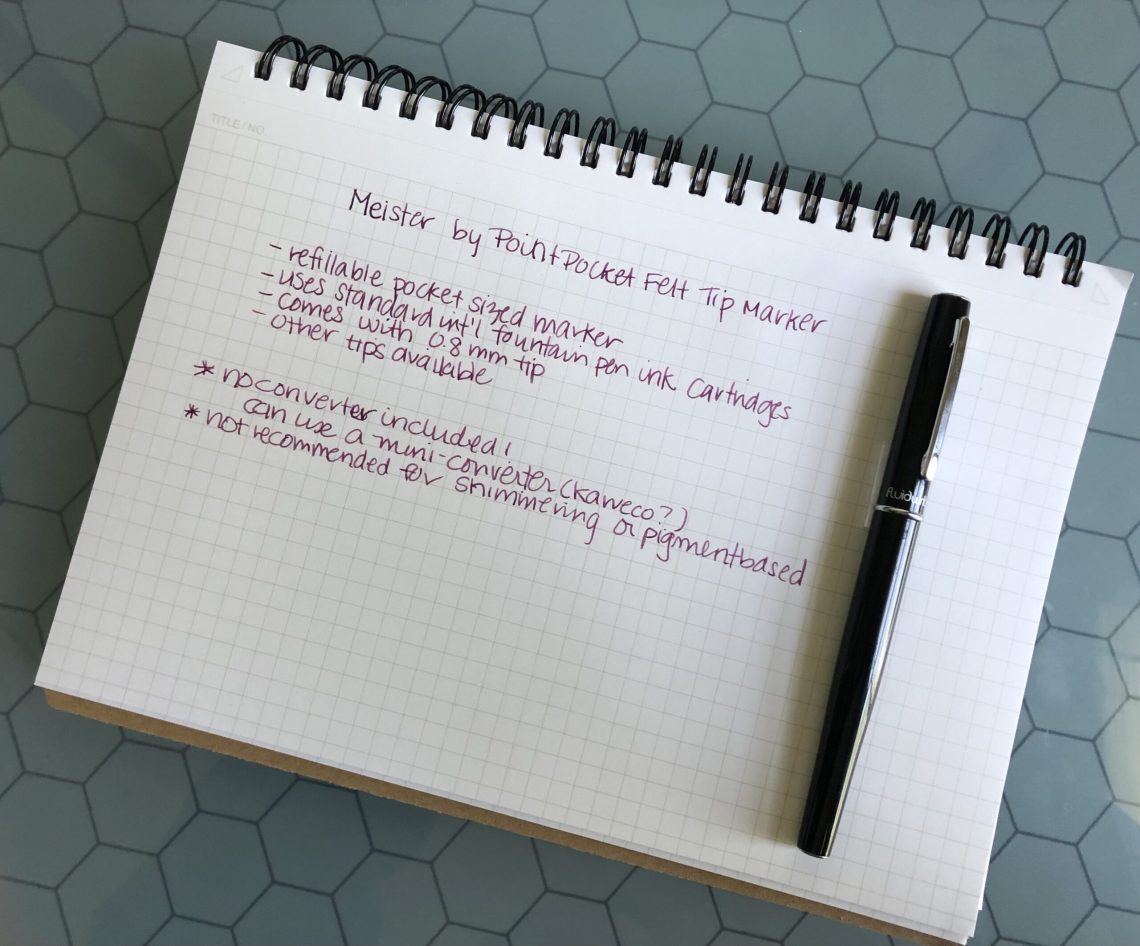 TITLE / NO.
Meister by Point Pocket Felt Tip Marker
- refillable pocket sized marker
- uses standard int'l fountain pen ink cartridges
- comes with 0.8 mm tip
- other tips available
* no converter included!
can use a mini-converter (Kaweco?)
* not recommended for shimmering or pigment based